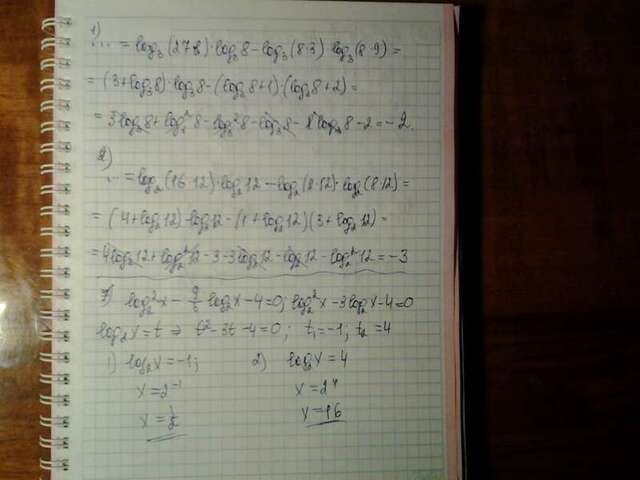 1)
... = log₃(27·8)·log₃8 - log₃(8·3)·log₃(8·9) =
= (3+log₃8)·log₃8 - (log₃8+1)·(log₃8+2) =
= 3log₃8 + log₃²8 - log₃²8 - log₃8 - 2log₃8 - 2 = -2.
2)
... = log₂(16·12)·log₂12 - log₂(2·12)·log₂(8·12) =
= (4+log₂12)·log₂12 - (1+log₂12)(3+log₂12) =
= 4log₂12 + log₂²12 - 3 - 3log₂12 - log₂12 - log₂²12 = -3
7) log₂²x - log₂x - 4 = 0; log₂²x - 3log₂x - 4 = 0
log₂x = t ⇒ t² - 3t - 4 = 0; t₁ = -1; t₂ = 4
1) log₂x = -1; 2) log₂x = 4
x = 2⁻¹ x = 2⁴
x = ½ x = 16